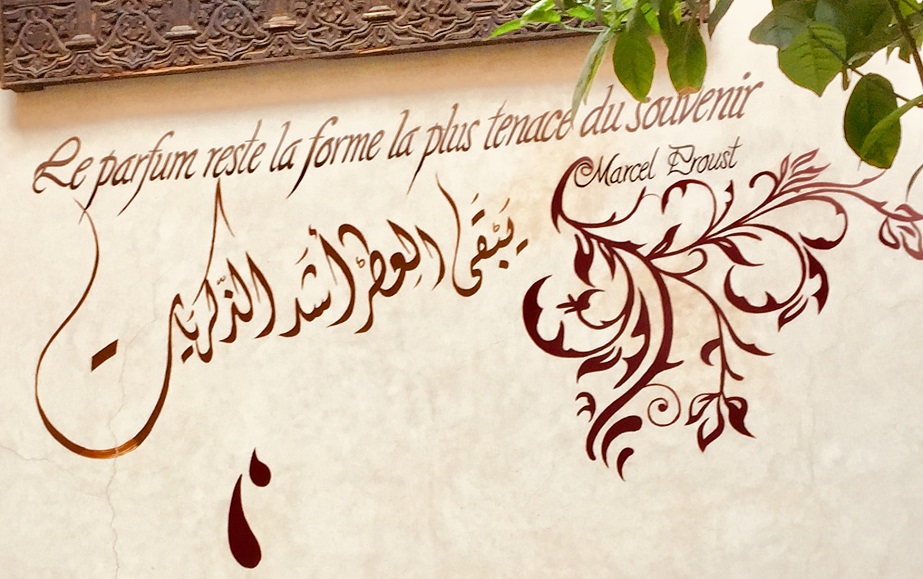 Le parfum reste la forme la plus tenace du souvenir
Marcel Proust
يَبْقَى العِطرُ أشَد الذّكريَات